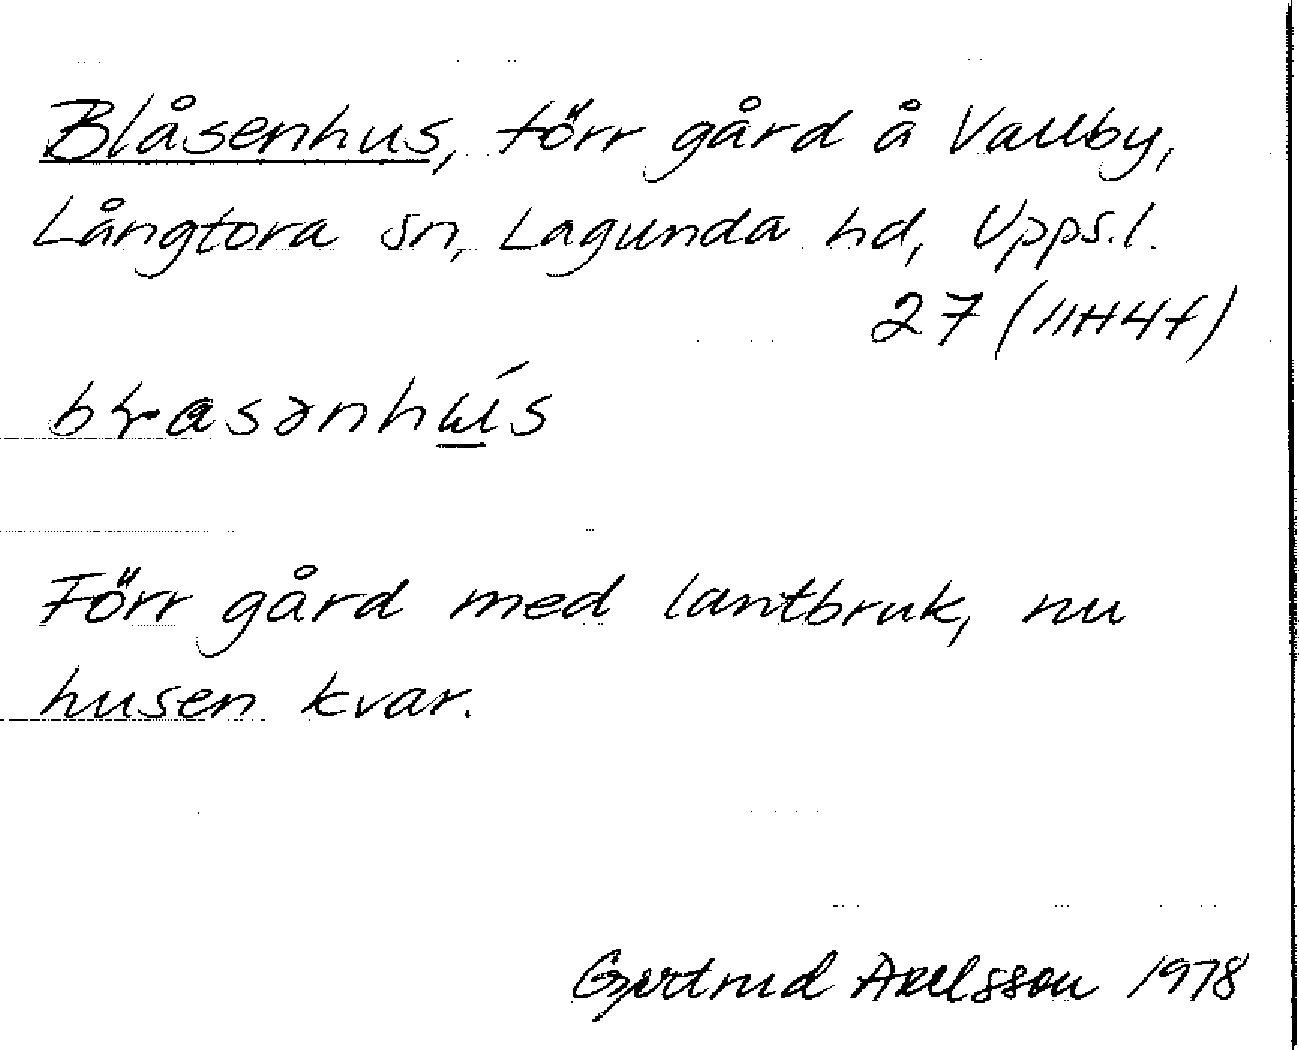 Blåsenhus, förr gård å Vallby,
Långtora sn, Lagunda hd, Upps.l.
27 (11H4f)
Förr gård med lantbruk, nu
husen kvar.
Gertrud Axelsson 1978